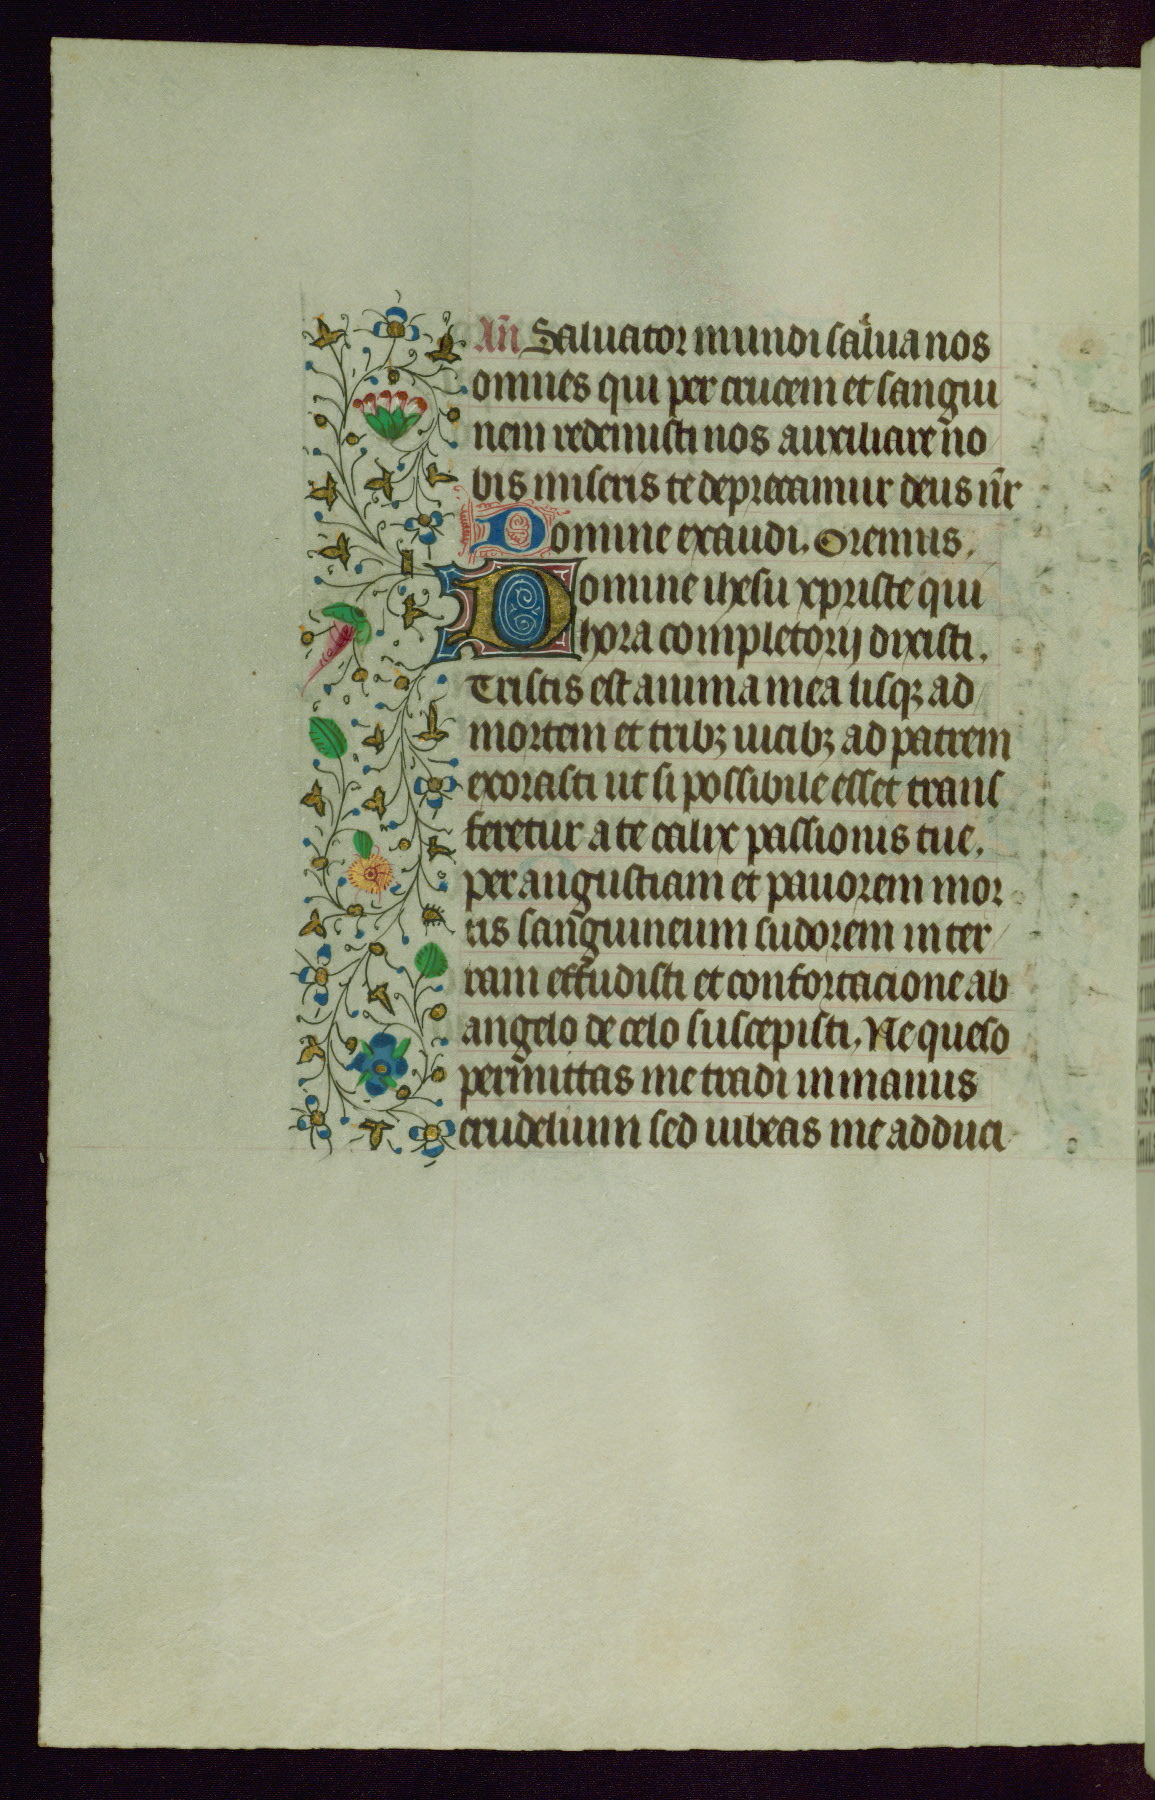 Añ Saluator mundi salua nos
omnes qui per crucem et sangui
nem redemisti nos auxiliare no
bis miseris te deprecamur deus nr̄
Domine exaudi. Oremus.
Domine ihesu xpriste qui
hora completorij dixisti.
Tristis est anima mea usqꝫ ad
mortem et tribꝫ uicibꝫ ad patrem
exorasti ut si possibile esset trans
feretur a te calix passionis tue.
per angustiam et pauorem mor
tis sanguineum sudorem in ter
ram effudisti et confortacione ab
angelo de celo suscepisti. Ne queso
permittas me tradi in manus
crudelium sed iubeas me adduci